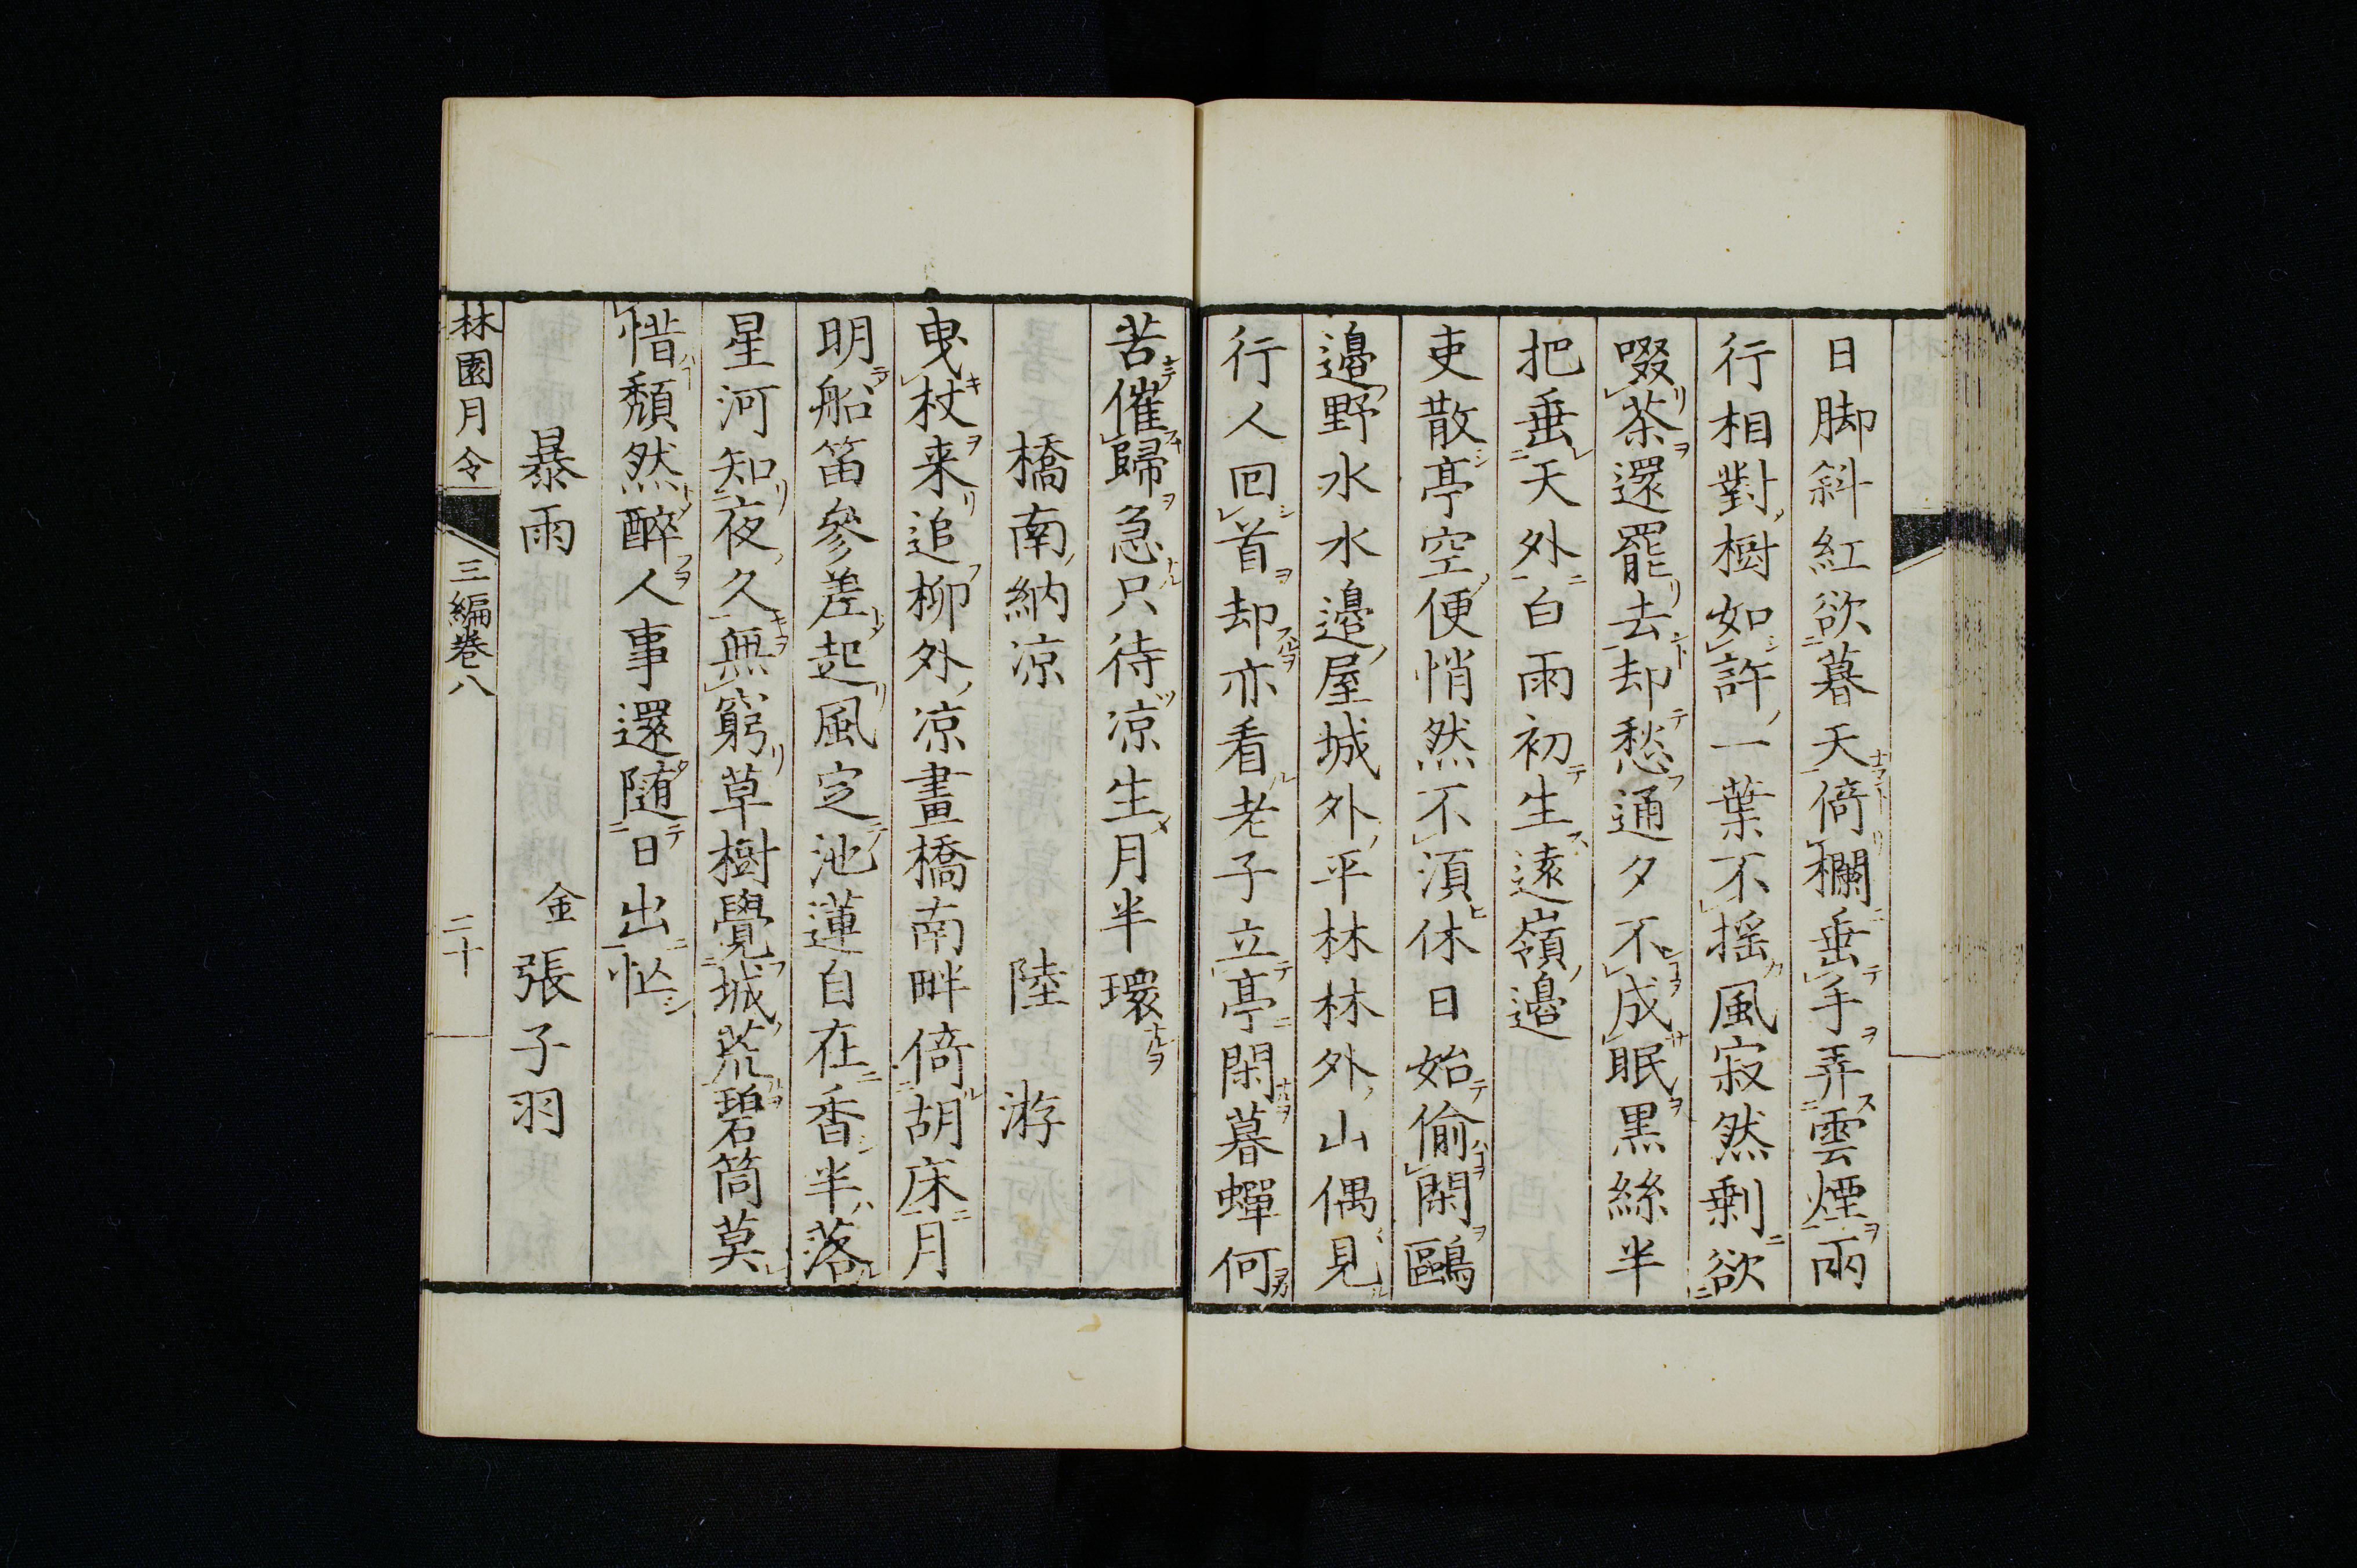 日脚斜紅欲暮天倚欄垂手弄雲煙兩
行相對樹如許一葉不搖風寂然剩欲
啜茶還罷去却愁通夕不成眠黒絲半
把垂天外白雨初生遠嶺邊
吏散亭空便悄然不須休日始偷閑鷗
邊野水水邊屋城外平林林外山偶見
行人回首却亦看老子立亭閑暮蟬何
苦催歸急只待凉生月半環
橋南納凉 陸游
曳杖来追柳外凉畫橋南畔倚胡床月
明船笛參差起風定池蓮自在香半落
星河知夜久無窮草樹覺城荒碧筒莫
惜頽然醉人事還随日出忙
暴雨 金 張子羽
林園月令 三編卷八 二十